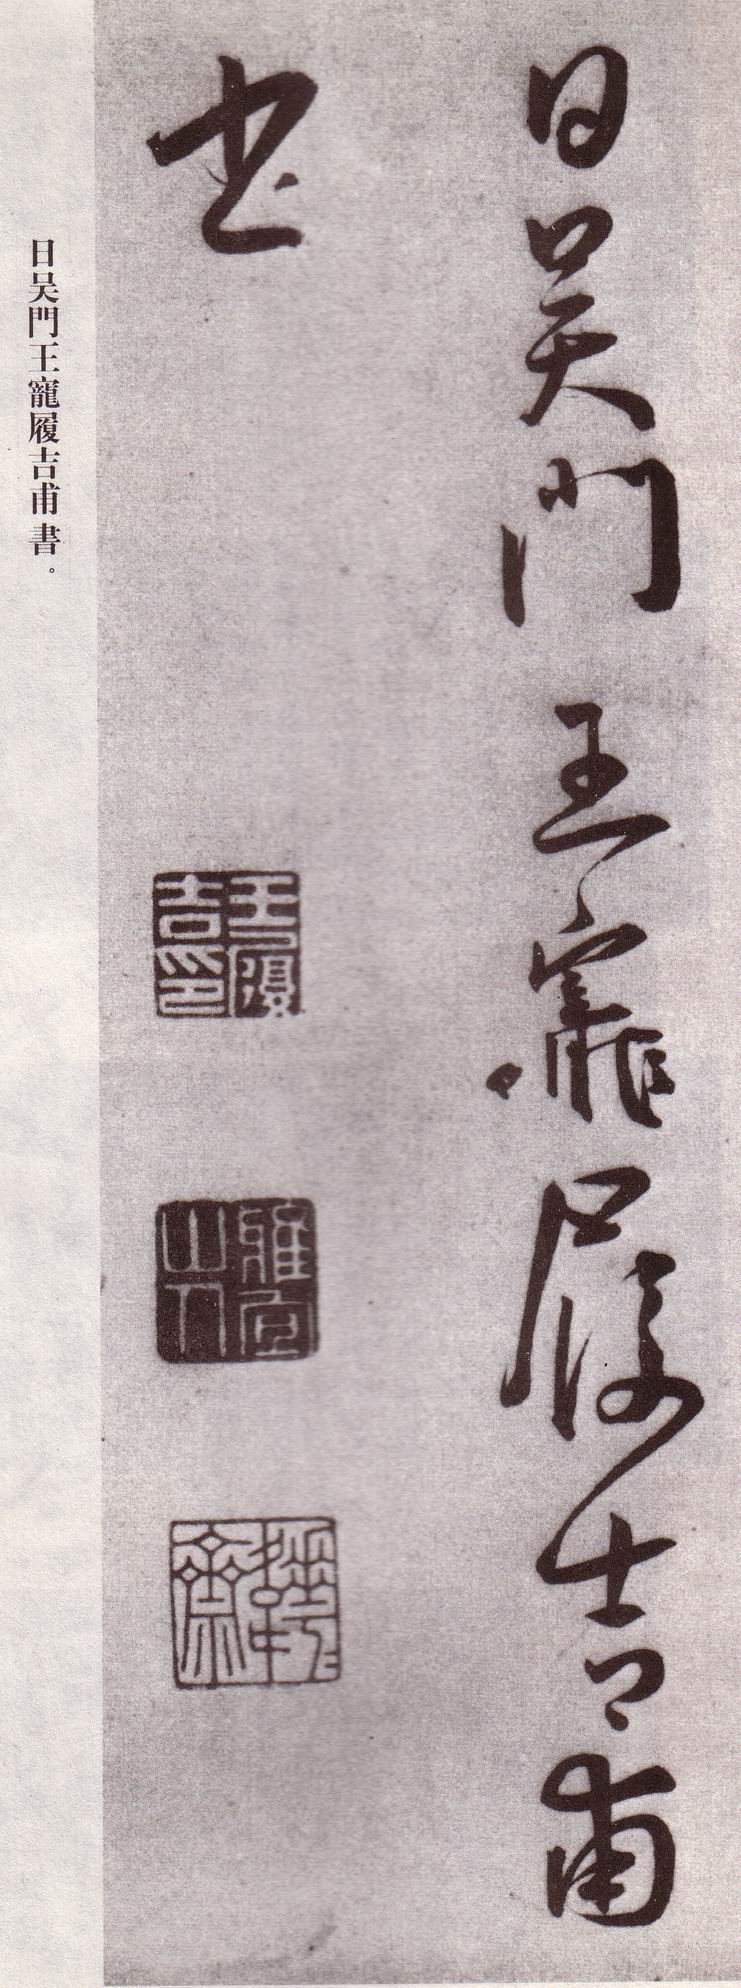 日吳門王寵履吉甫
書
王履吉印
雅宜山人
日吴門王寵履吉甫書。